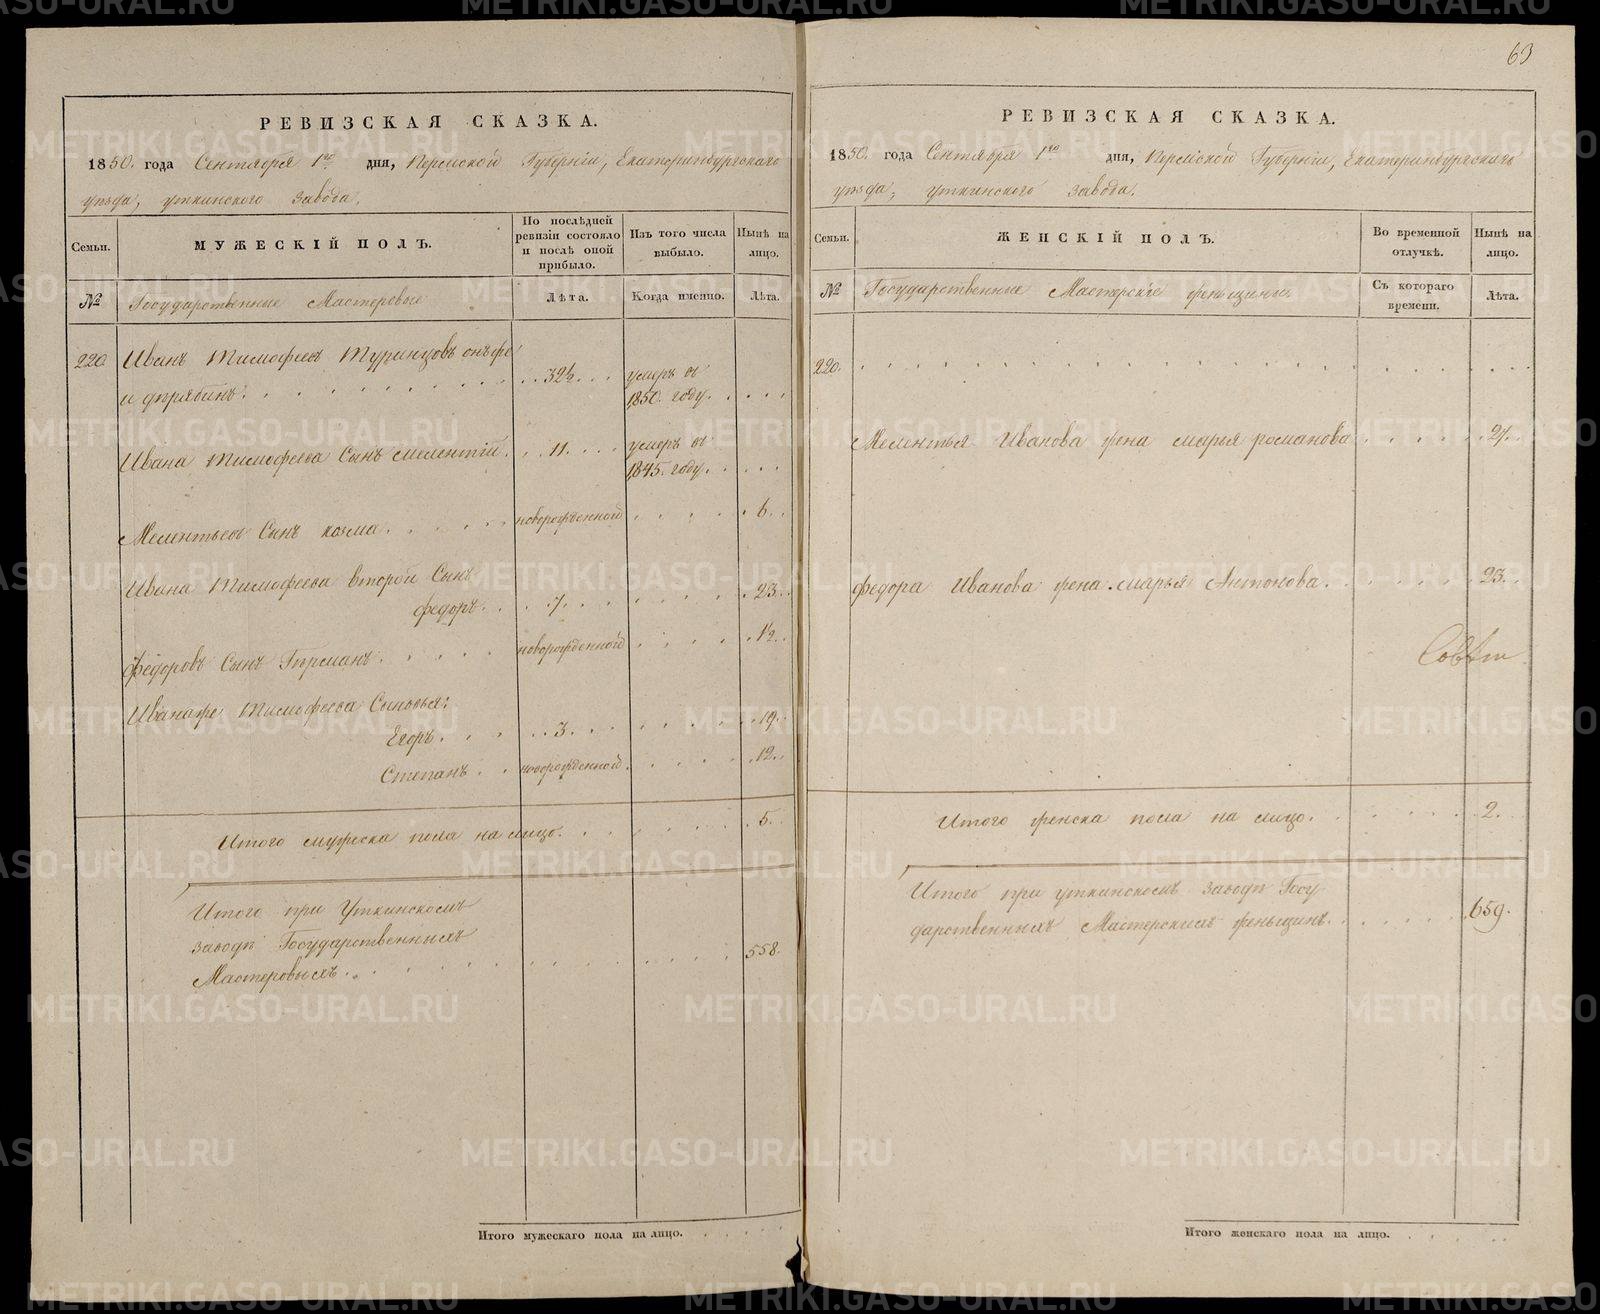 63
РЕВИЗСКАЯ СКАЗКА.
1850. года Сентября 1го дня, Пермской Губерніи, Екатеринбургскаго
уѣзда, уткинского завода.
Семьи.
МУЖЕСКІЙ ПОЛЪ.
По послѣдней ревизіи состояло и послѣ оной прибыло.
Изъ того числа выбыло.
Нынѣ на лицо.
№
Государственные Мастеровые
Лѣта.
Когда именно.
Лѣта.
220. Иванъ Тимофеевъ Туринцовъ онъже
и дтрябинъ. 32½ умеръ въ 1850. году.
Ивана Тимофеева Сынъ мелентій. 11. умеръ въ 1845. году.
Мелентьевъ Сынъ козма. новорожденной 6.
Ивана Тимофеева второй Сынъ
федоръ. 7. 23.
федоровъ Сынъ Германъ. новорожденной ½.
Иванаже Тимофеева Сыновья:
Егоръ. 3. 19.
Степанъ новорожденной. 12.
Итого мужеска пола на лицо. 5.
Итого при Уткинскомъ
заводѣ Государственныхъ
Мастеровыхъ. 558.
Итого мужескаго пола на лицо.
РЕВИЗСКАЯ СКАЗКА.
1850. года Сентября 1го дня, Пермской Губерніи, Екатеринбургскаго
уѣзда, уткинского завода.
Семьи.
ЖЕНСКІЙ ПОЛЪ.
Во временной отлучкѣ.
Нынѣ на лицо.
№
Государственные Мастерскіе женьщины
Съ котораго времени.
Лѣта.
220.
Мелентья Иванова жена марья романова 27.
федора Иванова жена марья Антонова. 23.
Итого женска пола на лицо. 2.
Итого при уткинскомъ заводѣ Госу-
дарственныхъ Мастерскихъ женьщинъ. 659.
Итого женскаго пола на лицо.
METRIKI.GASO-URAL.RU